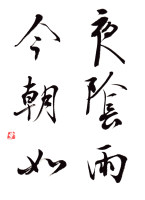 夜陰雨
今朝如